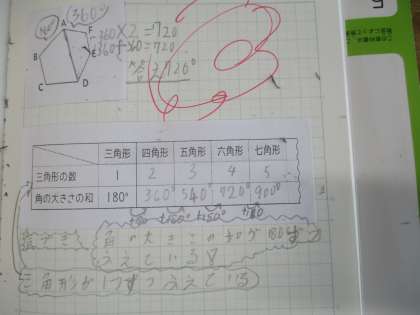 360°
A
F
B
E
C
D
360×2=720
360+360=720
答え720°
三角形 四角形 五角形 六角形 七角形
三角形の数 1 2 3 4 5
角の大きさの和 180° 360° 540° 720° 900°
角の大きさの和が180ずつ
ふえている
三角形が1つずつふえている